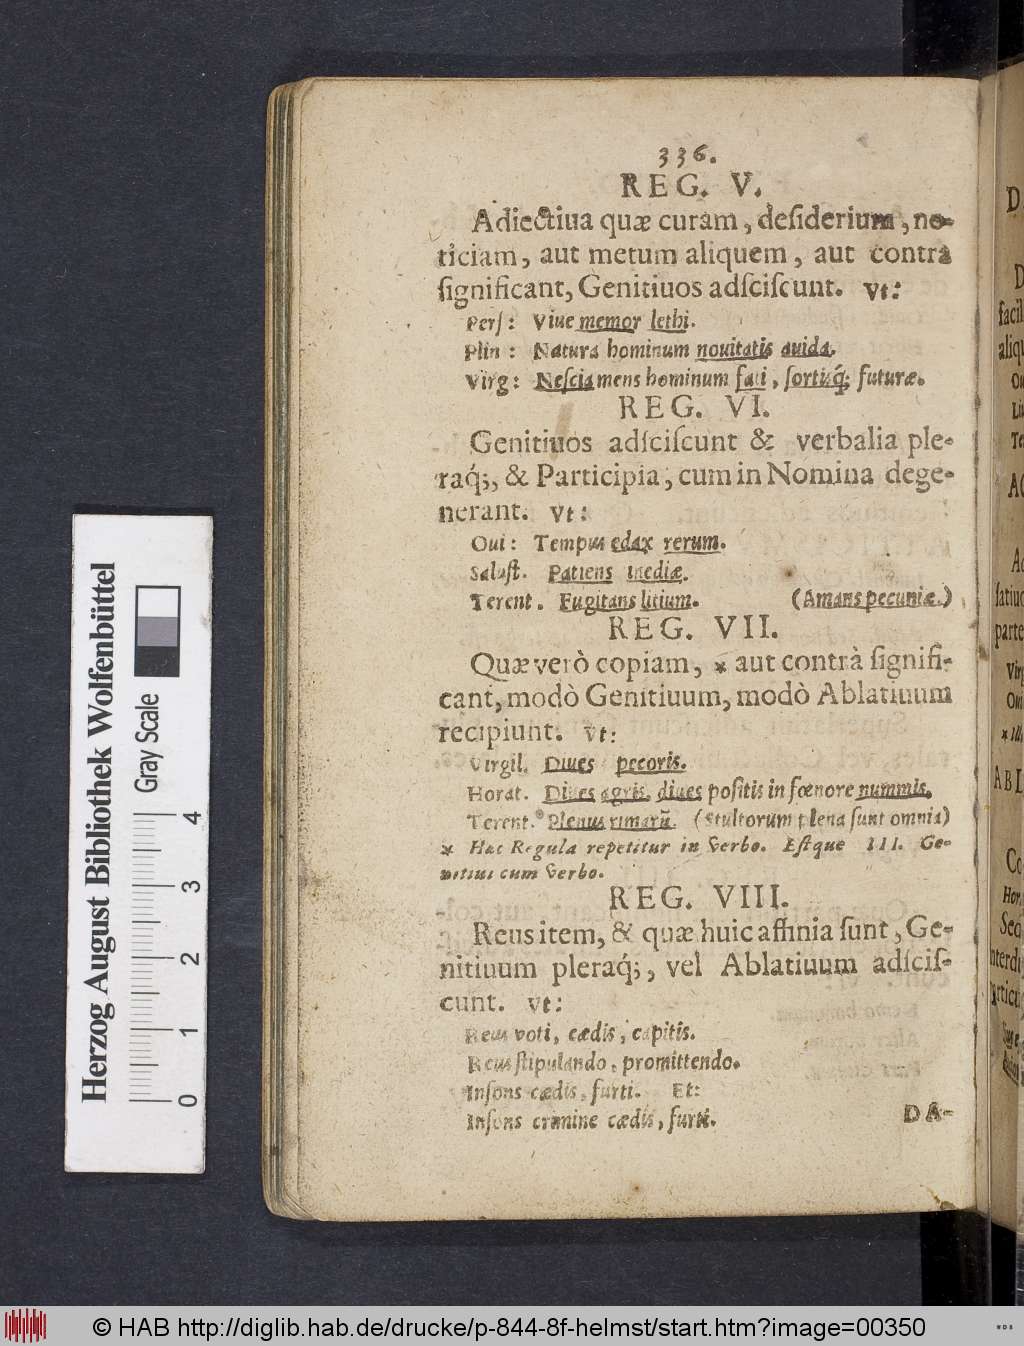 336.
REG. V.
Adiectiua quæ curam, deſiderium, no-
ticiam, aut metum aliquem, aut contra
ſignificant, Genitiuos adſciſcunt. vt:
Perſ: Viue memor lethi.
Plin: Natura hominum nouitatis auida.
Virg: Neſcia mens hominum fati, ſortisq́; futuræ.
REG. VI.
Genitiuos adſciſcunt & verbalia ple-
raq́;, & Participia, cum in Nomina dege-
nerant. vt:
Oui: Tempus edax rerum.
Saluſt. Patiens inediæ.
Terent. Fugitans litium. (Amans pecuniæ.)
REG. VII.
Quæ verò copiam, * aut contrà ſignifi-
cant, modò Genitiuum, modò Ablatiuum
recipiunt. vt:
Virgil. Diues pecoris.
Horat. Diues agris, diues poſitis in fœnore nummis.
Terent. Plenus rimarũ. (Stultorum plena ſunt omnia)
* Hæc Regula repetitur in Verbo. Eſtque III. Ge-
nitiui cum Verbo.
REG. VIII.
Reus item, & quæ huic affinia ſunt, Ge-
nitiuum pleraq́;, vel Ablatiuum adſciſ-
cunt. vt:
Reus voti, cædis, capitis.
Reus ſtipulando, promittendo.
Inſons cædis, furti. Et:
Inſons crimine cædis, furti.
DA-
Herzog August Bibliothek Wolfenbüttel
Gray Scale
0 1 2 3 4
© HAB http://diglib.hab.de/drucke/p-844-8f-helmst/start.htm?image=00350